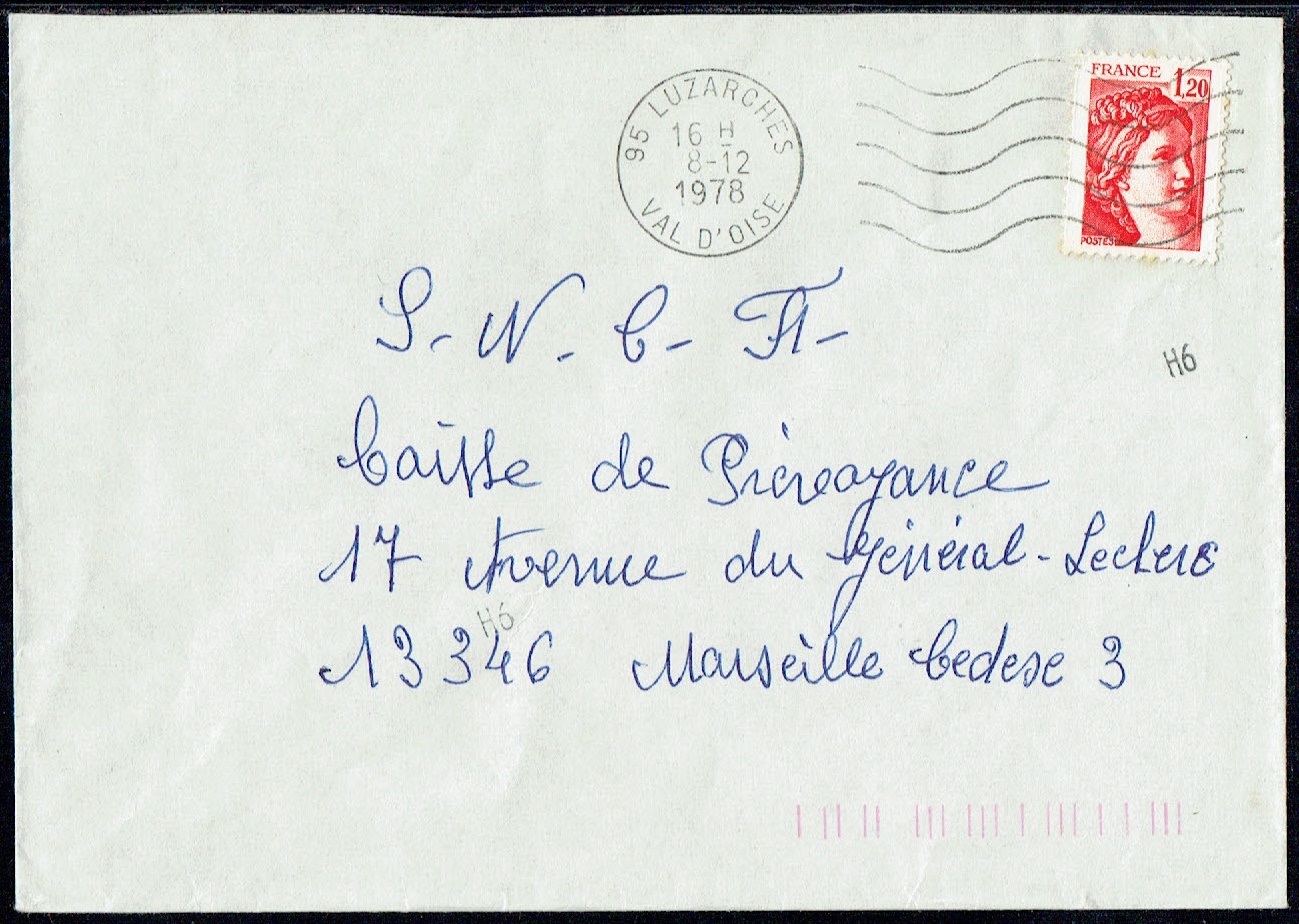 FRANCE 1,20
POSTES
95 LUZARCHES
16 H
8-12
1978
VAL D'OISE
S. N. C. F.
H6
Caisse de Prévoyance
17 Avenue du Général-Leclerc
H6
13346 Marseille Cedex 3